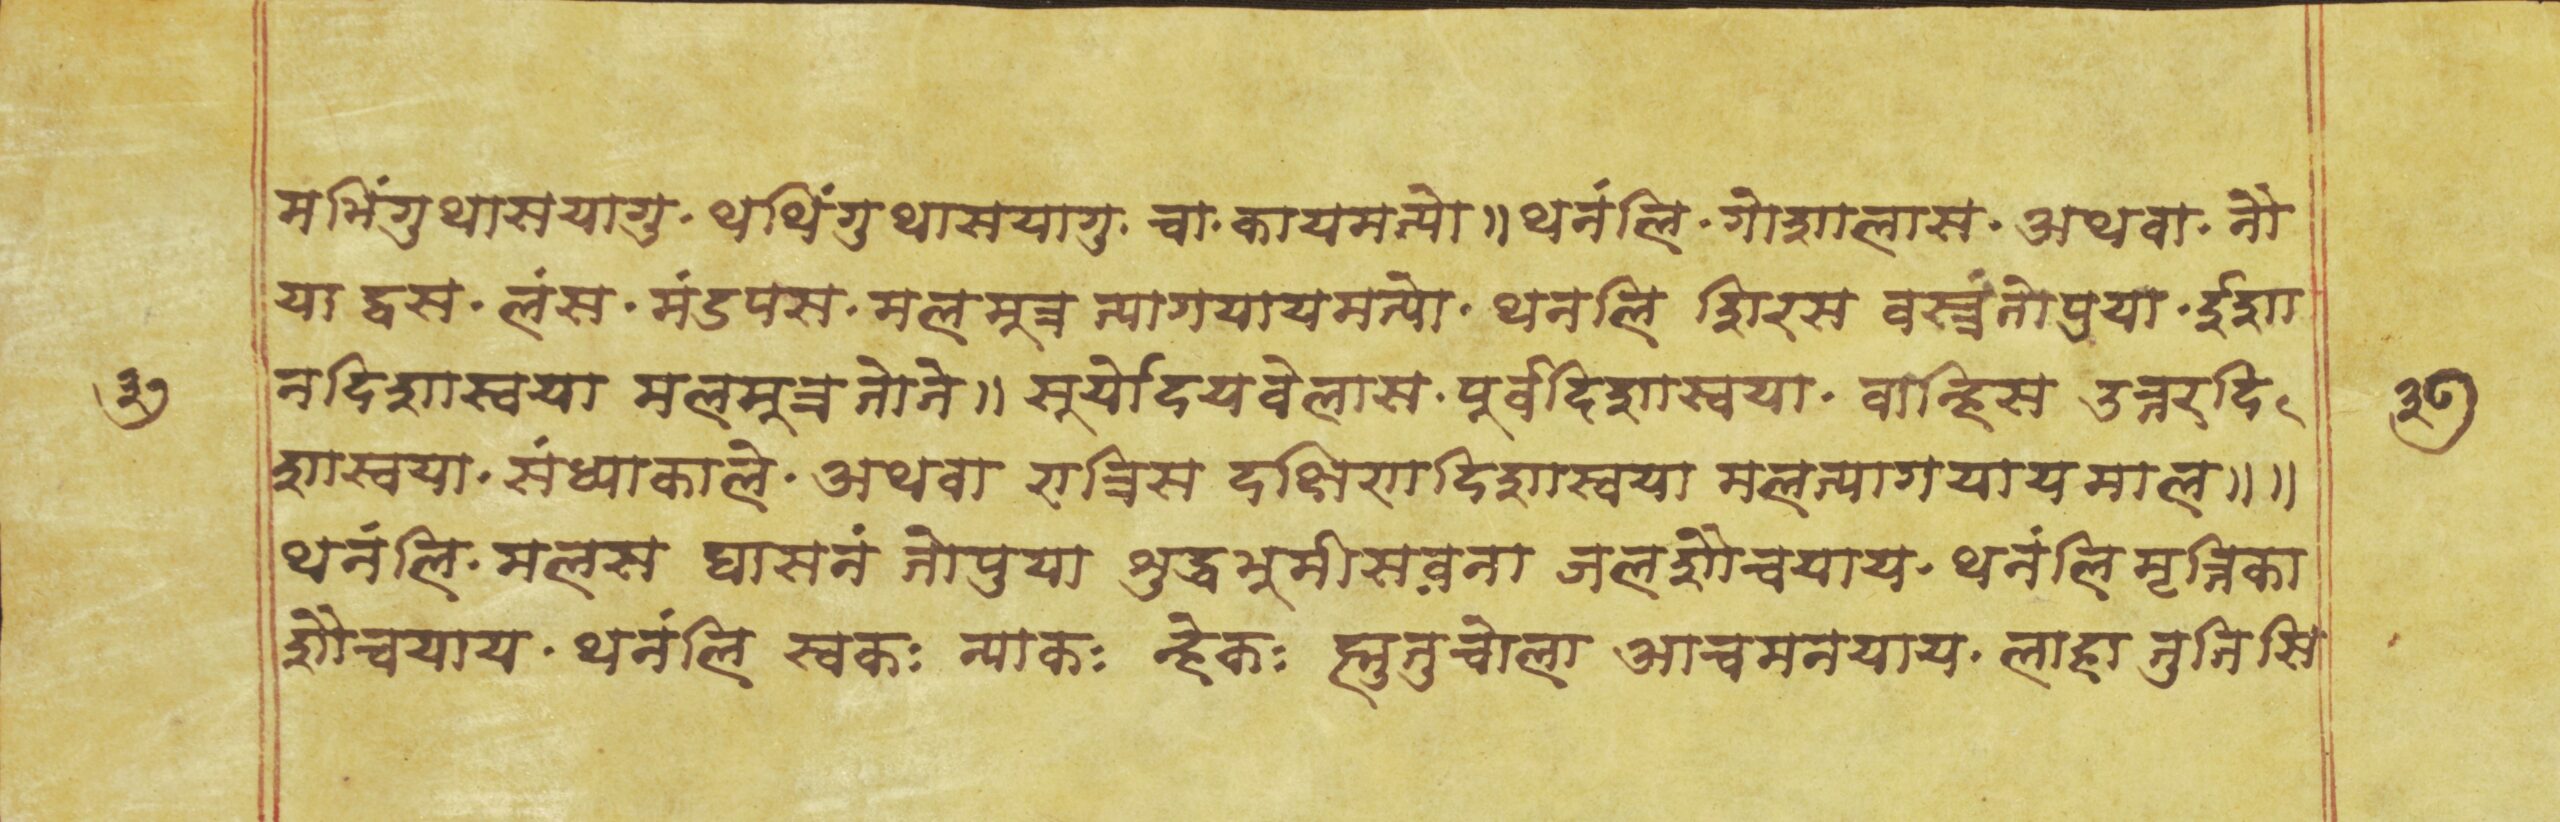 मभिंगुथासयागु. थथिंगुथासयागु. चा. कायमत्यो॥ थनंलि. गोशालास. अथवा. नौ
या द्वस. लंस. मंडपस. मलमूत्र त्यागयायमत्यो. थनलि शिरस वस्त्रंतोपुया. ईशा
३७ नदिशास्वया मलमूत्र तोते॥ सूर्योदयवेलास. पूर्वदिशास्वया. वान्हिस उत्तरदि ३७
शास्वया. संध्याकाले. अथवा रात्रिस दक्षिणदिशास्वया मलत्यागयायमाल॥॥
थनंलि. मलस घासनं तोपुया शुद्धभूमीसवना जलशौचयाय. थनंलि मृत्तिका
शौचयाय. थनंलि स्वकः प्याकः न्हेकः ह्नुतुचोला आचमनयाय. लाहा तुतिसि